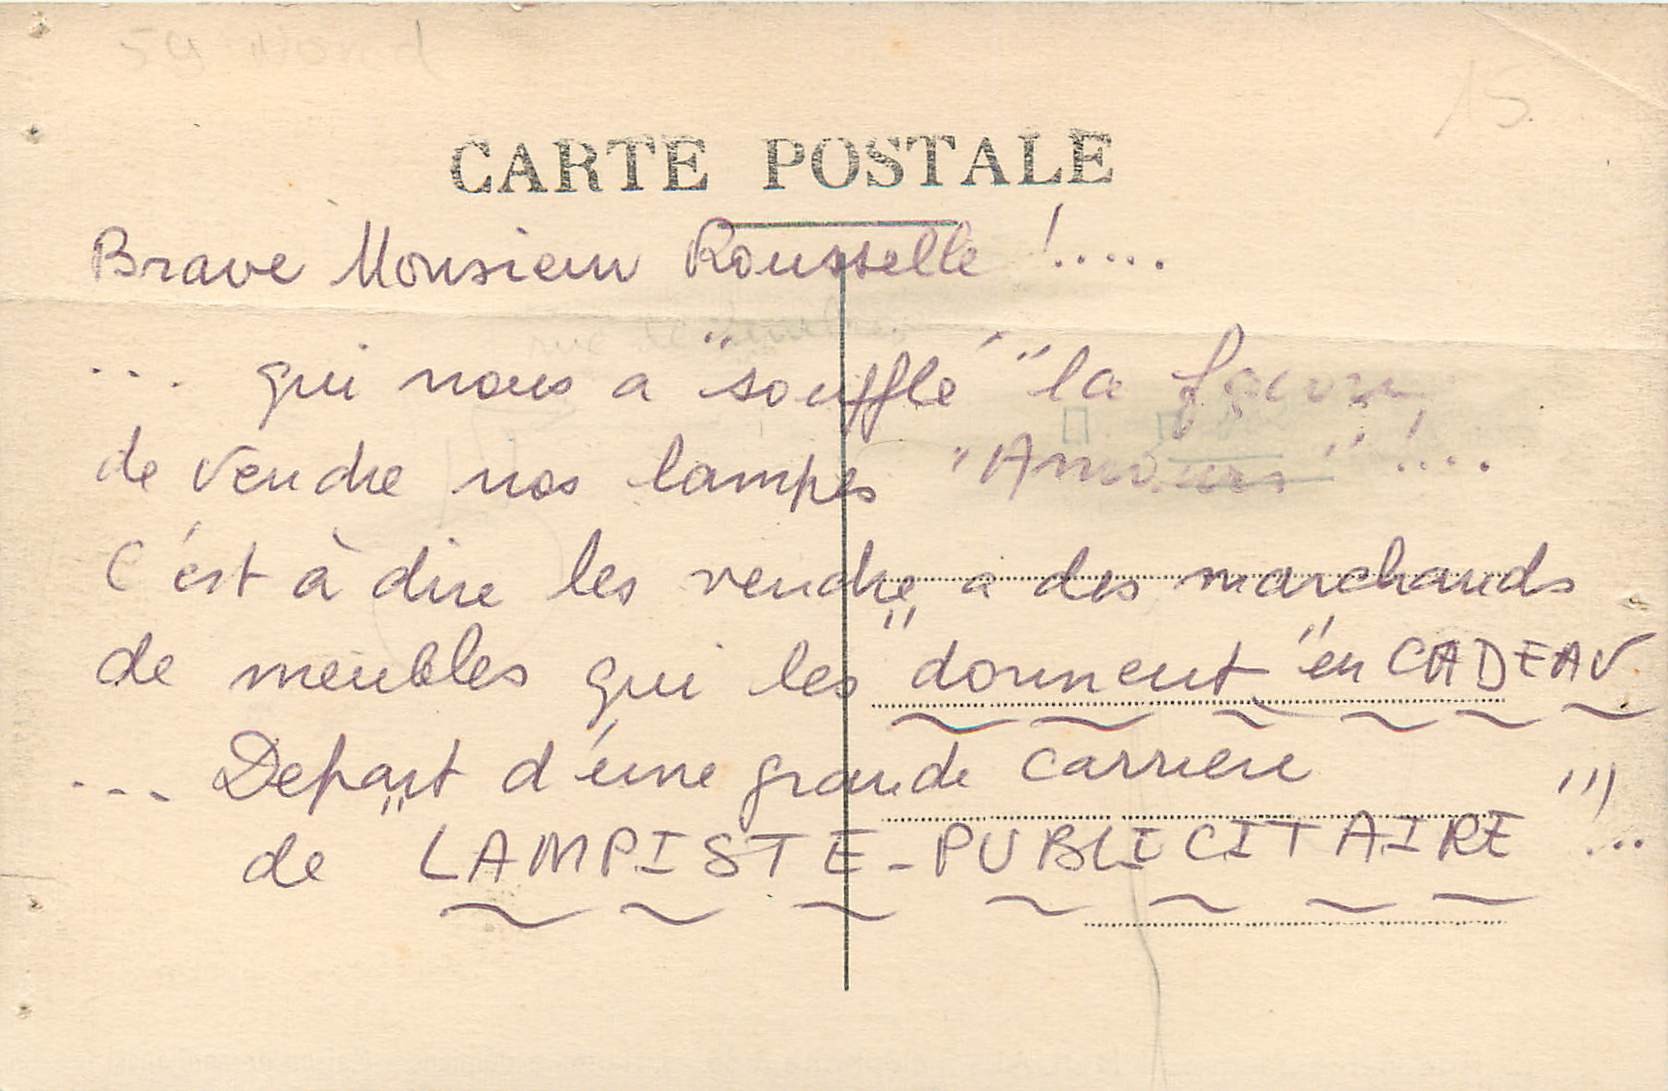 59 Nord
15
CARTE POSTALE
Brave Monsieur Rousselle !.....
... qui nous a "soufflé" la façon
de vendre nos lampes "Amours" !....
C'est à dire les vendre a des marchands
de meubles qui les "donnent" en CADEAU
... Depart d'une grande carriere
de "LAMPISTE-PUBLICITAIRE" ...